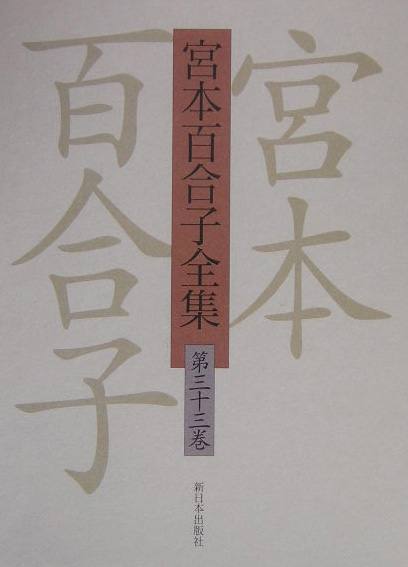 宮本
百合子
宮本百合子全集
第三十三巻
新日本出版社